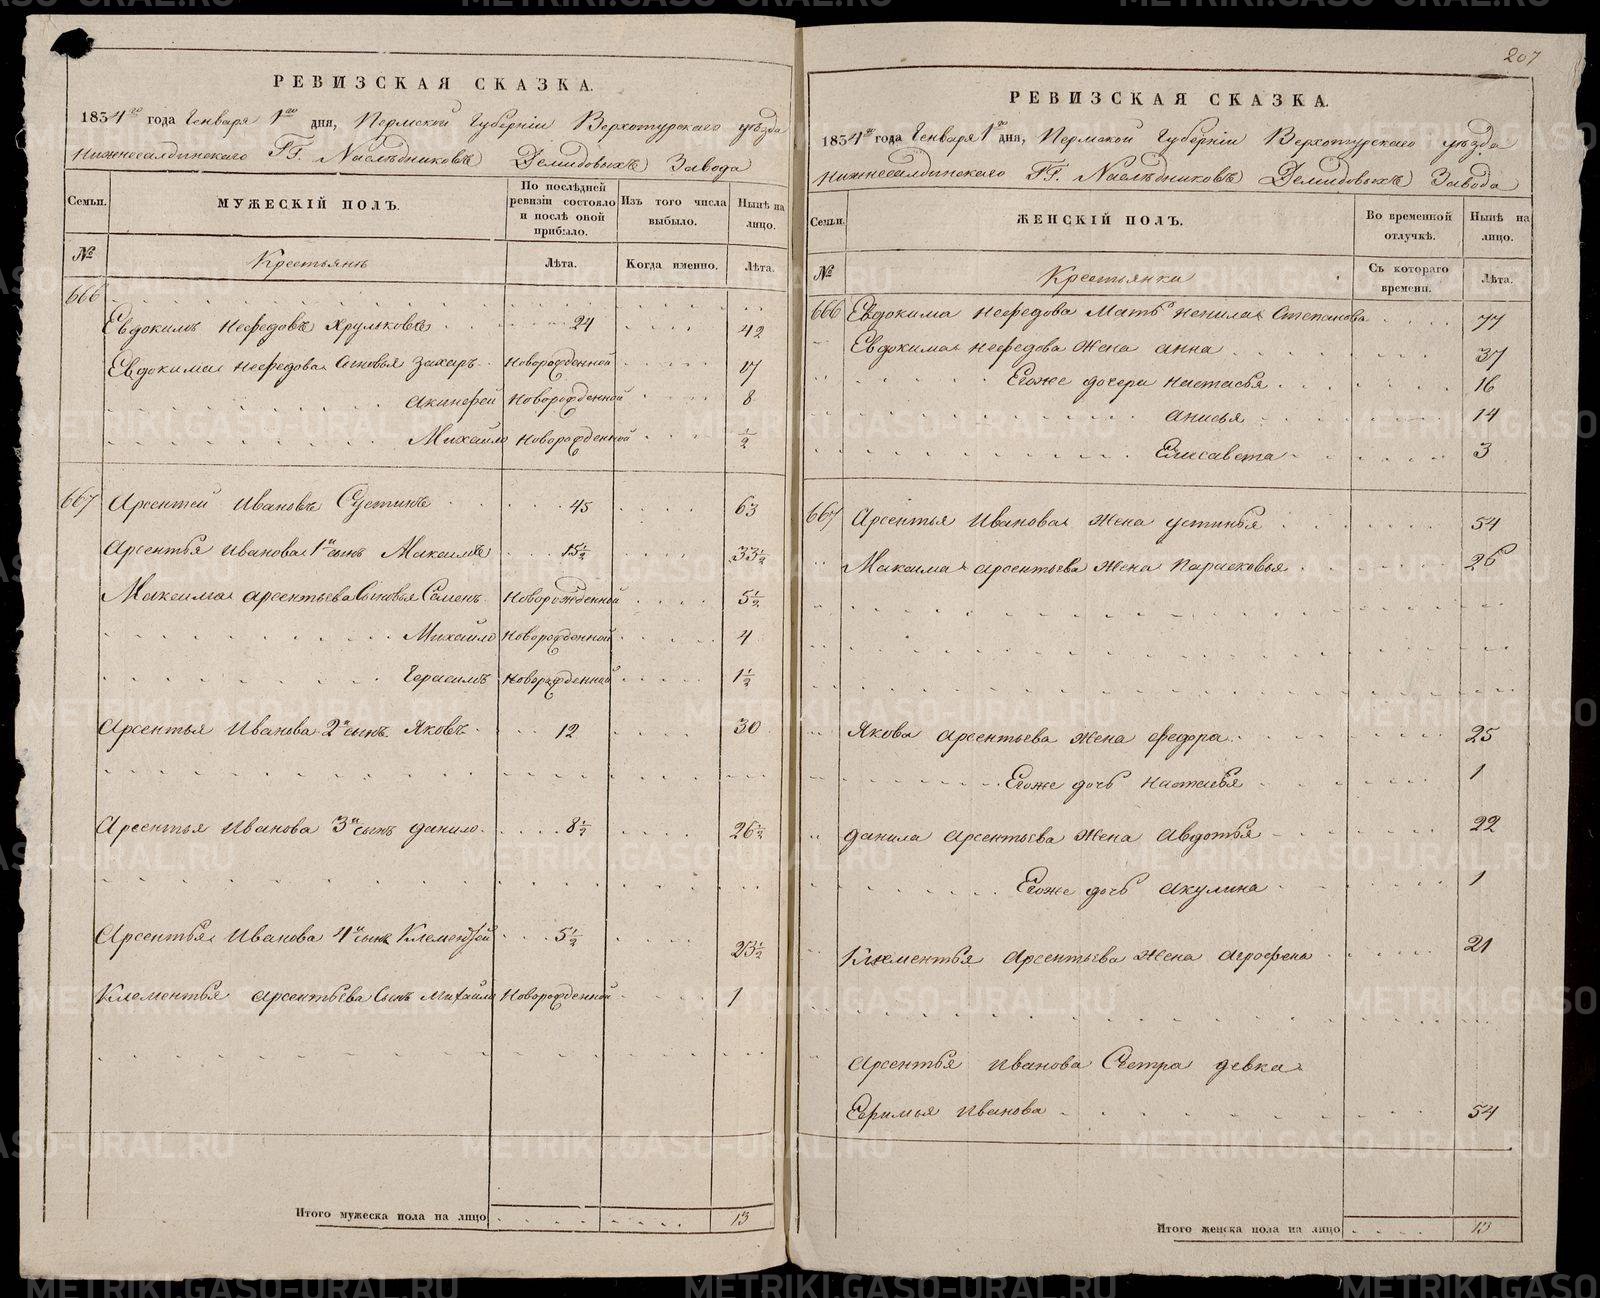 РЕВИЗСКАЯ СКАЗКА.
1834го года Генваря 1го дня, Пермской Губернiи Верхотурскаго уѣзда
Нижнесалдинскаго ГГ. Наслѣдниковъ Демидовыхъ Завода
Семьи.
МУЖЕСКIЙ ПОЛЪ.
По послѣдней ревизiи состояло и послѣ оной прибыло.
Изъ того числа выбыло.
Нынѣ на лицо.
№
Крестьянъ
Лѣта.
Когда именно.
Лѣта.
666
Евдокимъ Нефедовъ Хрульковъ 24 42
Евдокима Нефедова сыновья Захаръ Новорожденной 17
Акинфей Новорожденной 8
Михайло Новорожденной ½
667 Арсентей Ивановъ Сустинъ 45 63
Арсентья Иванова 1й сынъ Максимъ 15½ 33½
Максима Арсентьева Сыновья Семенъ Новорожденной 5½
Михайло Новорожденной 4
Герасимъ Новорожденной 1½
Арсентья Иванова 2й сынъ Яковъ 12 30
Арсентья Иванова 3й сынъ Данило 8½ 26½
Арсентья Иванова 4й сынъ Клементей 5½ 23½
Клементья Арсентьева Сынъ Михайло Новорожденной 1
Итого мужеска пола на лицо 13
207
РЕВИЗСКАЯ СКАЗКА.
1834го года Генваря 1го дня, Пермской Губернiи Верхотурскаго уѣзда
Нижнесалдинскаго ГГ. Наслѣдниковъ Демидовыхъ Завода
Семьи.
ЖЕНСКIЙ ПОЛЪ.
Во временной отлучкѣ.
Нынѣ на лицо.
№
Крестьянки
Съ котораго времени.
Лѣта.
666 Евдокима Нефедова Мать Ненила Степанова 77
Евдокима Нефедова Жена Анна 37
Егоже дочери Настасья 16
Анисья 14
Елисавета 3
667 Арсентья Иванова Жена Устинья 54
Максима Арсентьева Жена Парасковья 26
Якова Арсентьева Жена Федора 25
Егоже дочь Настасья 1
Данила Арсентьева Жена Авдотья 22
Егоже дочь Акулина 1
Клементья Арсентьева Жена Агрофена 21
Арсентья Иванова Сестра девка
Ефимья Иванова 54
Итого женска пола на лицо 13
METRIKI.GASO-URAL.RU